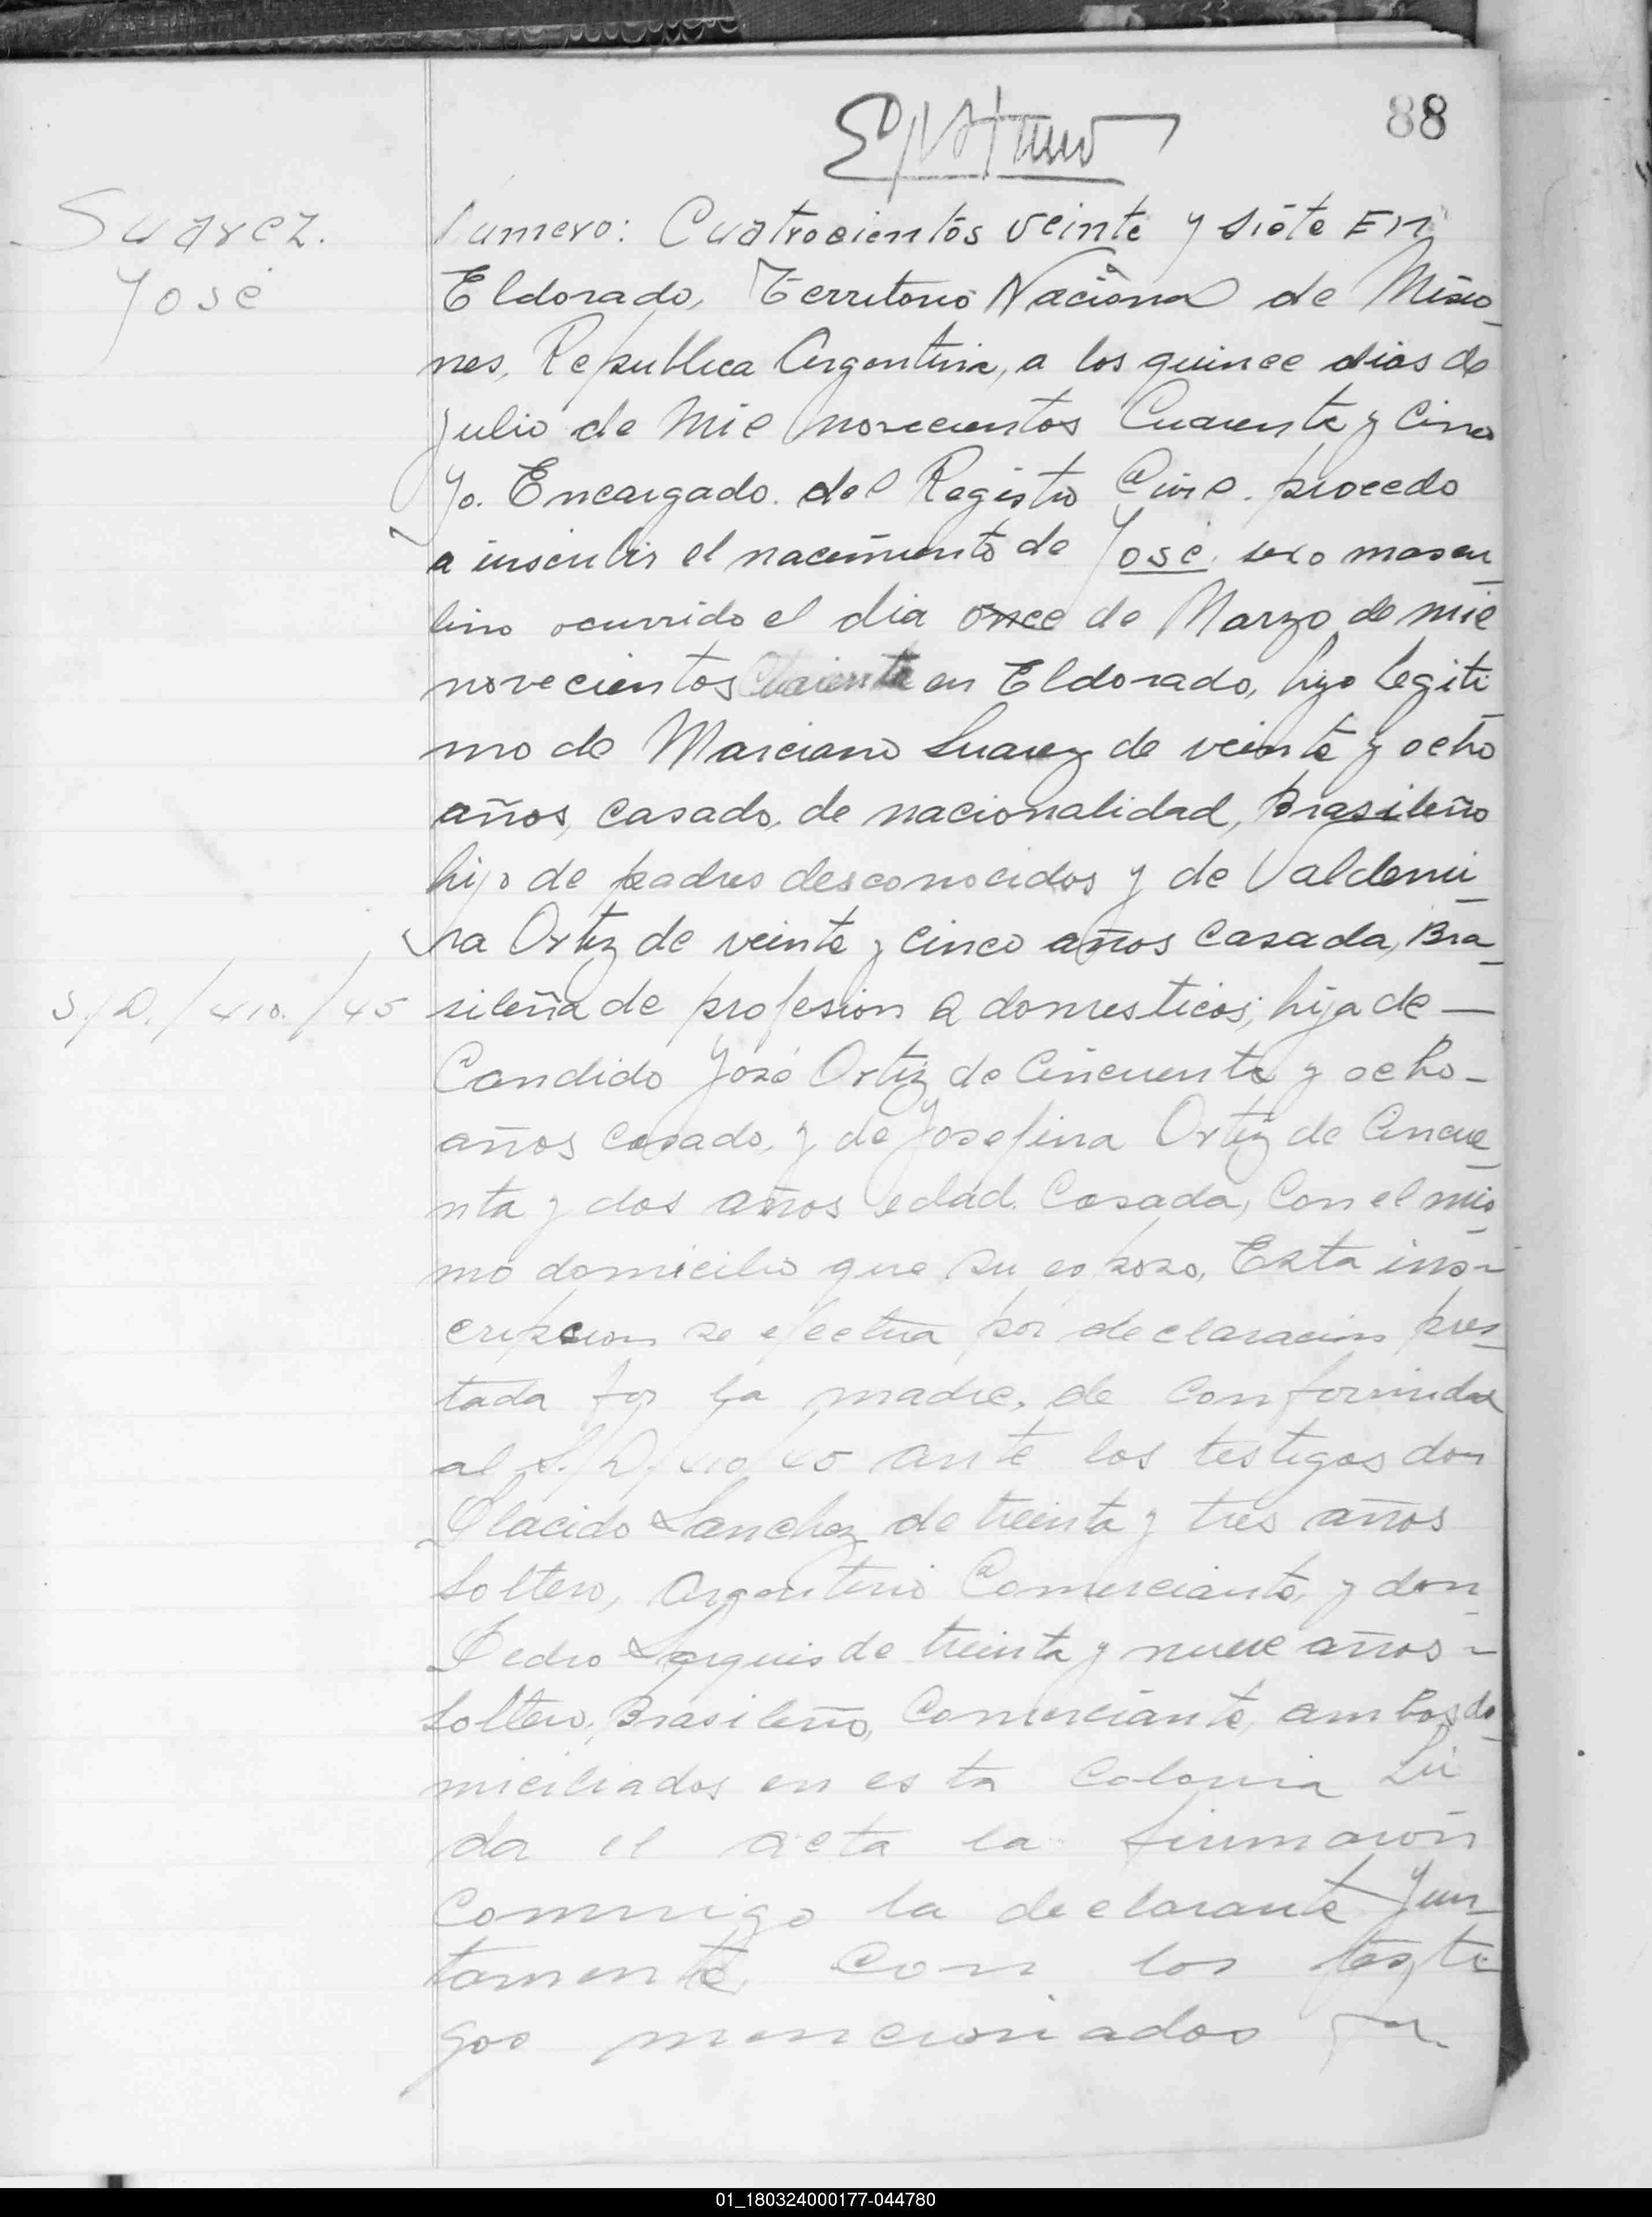 88
Suarez.
José
Número: Cuatrocientos veinte y siete En
Eldorado, Territorio Nacional de Misio_
nes, Republica Argentina, a los quince dias de
Julio de Mil novecientos Cuarenta y Cinco
Yo. Encargado. del Registro Civil. procedo
a inscribir el nacimiento de José. sexo mascu_
lino ocurrido el dia once de Marzo de mil
novecientos en Eldorado, hijo legiti_
mo de Marciano Suarez de veinte y ocho
años, casado, de nacionalidad, Brasileño
hijo de padres desconocidos y de Valdemi_
ra Ortiz de veinte y cinco años casada, Bra_
S./D./410./45
sileña de profesion Q domesticos; hija de —
Candido José Ortiz de Cincuenta y ocho -
años casado, y de Josefina Ortiz de Cincue_
nta y dos años edad. Casada, Con el mis_
mo domicilio que su esposo, Esta ins-
cripcion se efectua por declaracion pres_
tada por la madre, de conformidad
al S./D./410/45 ante los testigos don
Placido Sanchez de treinta y tres años
soltero, Argentino Comerciante, y don_
Pedro de treinta y nueve años -
soltero, Brasileño, Comerciante, ambos do_
miciliados en esta Colonia Lei
da el acta la firmaron
conmigo la declarante Jun_
tamente con los testi
gos mencionados
01_180324000177-044780